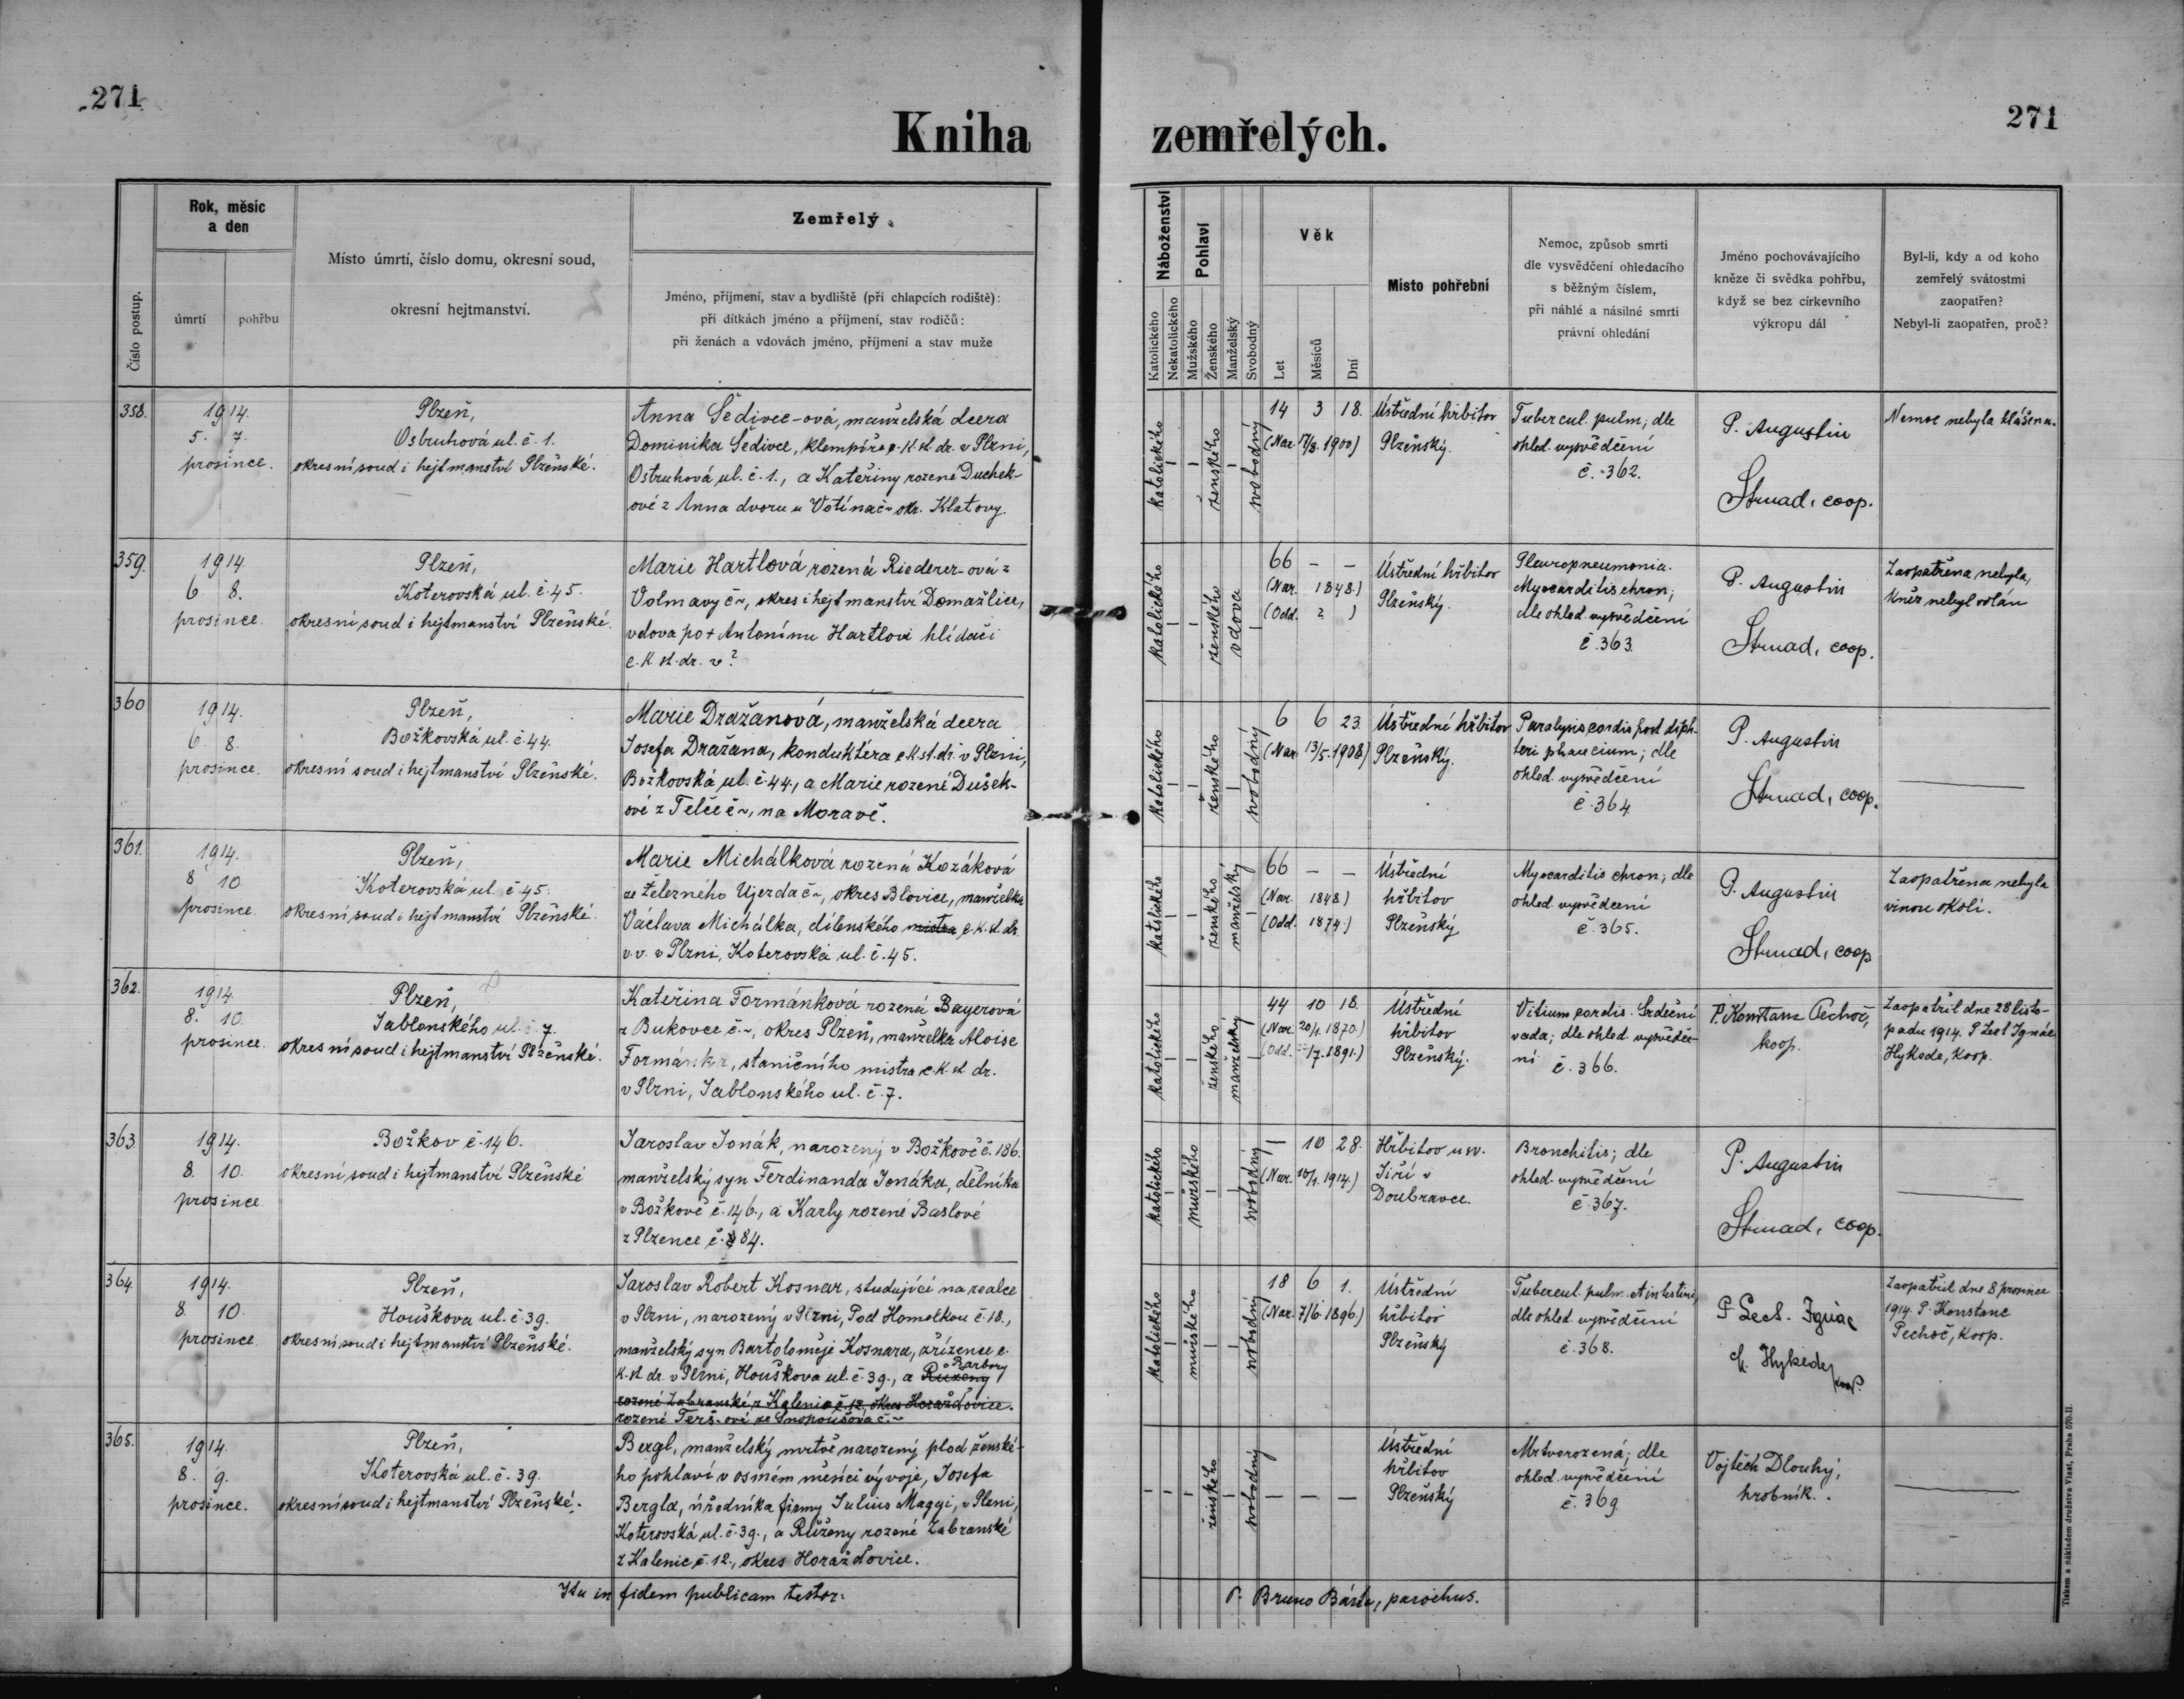 271
Kniha zemřelých.
271
Číslo postup.
Rok, měsíc
a den
úmrtí
pohřbu
Místo úmrtí, číslo domu, okresní soud,
okresní hejtmanství.
Zemřelý
Jméno, příjmení, stav a bydliště (při chlapcích rodiště):
při dítkách jméno a příjmení, stav rodičů:
při ženách a vdovách jméno, příjmení a stav muže
Náboženství
Katolického
Nekatolického
Pohlaví
Mužského
Ženského
Manželský
Svobodný
Věk
Let
Měsíců
Dní
Místo pohřební
Nemoc, způsob smrti
dle vysvědčení ohledacího
s běžným číslem,
při náhlé a násilné smrti
právní ohledání
Jméno pochovávajícího
kněze či svědka pohřbu,
když se bez církevního
výkropu dál
Byl-li, kdy a od koho
zemřelý svátostmi
zaopatřen?
Nebyl-li zaopatřen, proč?
358.
1914.
5. 7.
prosince.
Plzeň,
Ostruhová ul. č. 1.
okresní soud i hejtmanství Plzeňské.
Anna Šedivec-ová, manželská dcera
Dominika Šedivce, klempíře c. k. st. dr. v Plzni,
Ostruhová ul. č. 1., a Kateřiny rozené Duchek-
ové z Anna dvoru u Votína č~ okr. Klatovy.
katolického
ženského
svobodný
14 3 18.
(Nar. 17/8. 1900)
Ústřední hřbitov
Plzeňský.
Tubercul. pulm; dle
ohled. vysvědčení
č. 362.
P. Augustin
Strnad, coop.
Nemoc nebyla hlášena.
359.
1914.
6 8.
prosince.
Plzeň,
Koterovská ul. č. 45.
okresní soud i hejtmanství Plzeňské.
Marie Hartlová rozená Riederer-ová z
Volmavy č~, okres i hejtmanství Domažlice,
vdova po + Antonínu Hartlovi hlídači
c. k. st. dr. v ?
katolického
ženského
vdova
66 – –
(Nar. 1848.)
(Odd. ? )
Ústřední hřbitov
Plzeňský.
Pleuropneumonia.
Myocarditis chron;
dle ohled. vysvědčení
č. 363.
P. Augustin
Strnad, coop.
Zaopatřena nebyla,
kněz nebyl volán
360
1914.
6. 8.
prosince.
Plzeň,
Božkovská ul. č. 44.
okresní soud i hejtmanství Plzeňské.
Marie Dražanová, manželská dcera
Josefa Dražana, konduktéra c. k. st. dr. v Plzni,
Božkovská ul. č. 44., a Marie rozené Dušek-
ové z Telče č~, na Moravě.
katolického
ženského
svobodný
6 6 23.
(Nar. 13/5. 1908)
Ústřední hřbitov
Plzeňský.
Paralysis cordis post diph-
teri phaucium; dle
ohled. vysvědčení
č. 364
P. Augustin
Strnad, coop.
361.
1914.
8 10
prosince.
Plzeň,
Koterovská ul. č. 45.
okresní soud i hejtmanství Plzeňské.
Marie Michálková rozená Kozáková
ze Železného Újezda č~, okres Blovice, manželka
Václava Michálka, dílenského mistra c. k. st. dr.
v. v. v Plzni, Koterovská ul. č. 45.
katolického
ženského
manželský
66 – –
(Nar. 1848)
(Odd. 1874.)
Ústřední
hřbitov
Plzeňský
Myocarditis chron; dle
ohled. vysvědčení
č. 365.
P. Augustin
Strnad, coop
Zaopatřena nebyla
vinou okolí.
362.
1914.
8. 10.
prosince.
Plzeň,
Jablonského ul. č. 7.
okresní soud i hejtmanství Plzeňské.
Kateřina Formánková rozená Bayerová
z Bukovce č.~, okres Plzeň, manželka Aloise
Formánka, staničního mistra c. k. st. dr.
v Plzni, Jablonského ul. č. 7.
katolického
ženského
manželský
44 10 18.
(Nar. 20/1. 1870.)
(Odd. /7. 1891.)
Ústřední
hřbitov
Plzeňský.
Vitium cordis. Srdeční
vada; dle ohled. vysvědče-
ní č. 366.
P. Konstanc Pechoč,
koop.
Zaopatřil dne 28 listo-
padu 1914. P. Lect Ignác
Hykede, koop.
363.
1914.
8. 10.
prosince.
Božkov č. 146.
okresní soud i hejtmanství Plzeňské
Jaroslav Jonák, narozený v Božkově č. 186.
manželský syn Ferdinanda Jonáka, dělníka
v Božkově č. 146., a Karly rozené Baslové
z Plzence č. 84.
katolického
mužského
svobodný
– 10 28.
(Nar. 10/1. 1914.)
Hřbitov u sv.
Jiří v
Doubravce.
Bronchitis; dle
ohled. vysvědčení
č. 367.
P. Augustin
Strnad, coop.
364.
1914.
8. 10.
prosince
Plzeň,
Houškova ul. č. 39.
okresní soud i hejtmanství Plzeňské.
Jaroslav Robert Kosnar, studující na realce
v Plzni, narozený v Plzni, Pod Homolkou č. 18.,
manželský syn Bartoloměje Kosnara, zřízence c.
k. st. dr. v Plzni, Houškova ul. č. 39., a Růženy Barbory
rozené Zabranské z Kalenic č. 12., okres Horažďovice.
rozené Terš-ové ze Snopoušova č.~
katolického
mužského
svobodný
18 6 1.
(Nar. 7/6. 1896.)
Ústřední
hřbitov
Plzeňský
Tubercul. pulm. et intestini,
dle ohled. vysvědčení
č. 368.
P. Lect. Ignác
Hykede, koop.
Zaopatřil dne 8 prosince
1914. P. Konstanc
Pechoč, koop.
365.
1914.
8. 9.
prosince.
Plzeň,
Koterovská ul. č. 39.
okresní soud i hejtmanství Plzeňské.
Bergl, manželský mrtvě narozený plod ženské-
ho pohlaví v osmém měsíci vývoje, Josefa
Bergla, úředníka firmy Julius Maggi, v Plzni,
Koterovská ul. č. 39., a Růženy rozené Zabranské
z Kalenic č. 12., okres Horažďovice.
ženského
svobodný
– – –
Ústřední
hřbitov
Plzeňský
Mrtvorozená; dle
ohled. vysvědčení
č. 369
Vojtěch Dlouhý,
hrobník.
Ita in fidem publicam testor:
P. Bruno Bárta, parochus.
Tiskem a nákladem družstva Vlast, Praha 570-II.